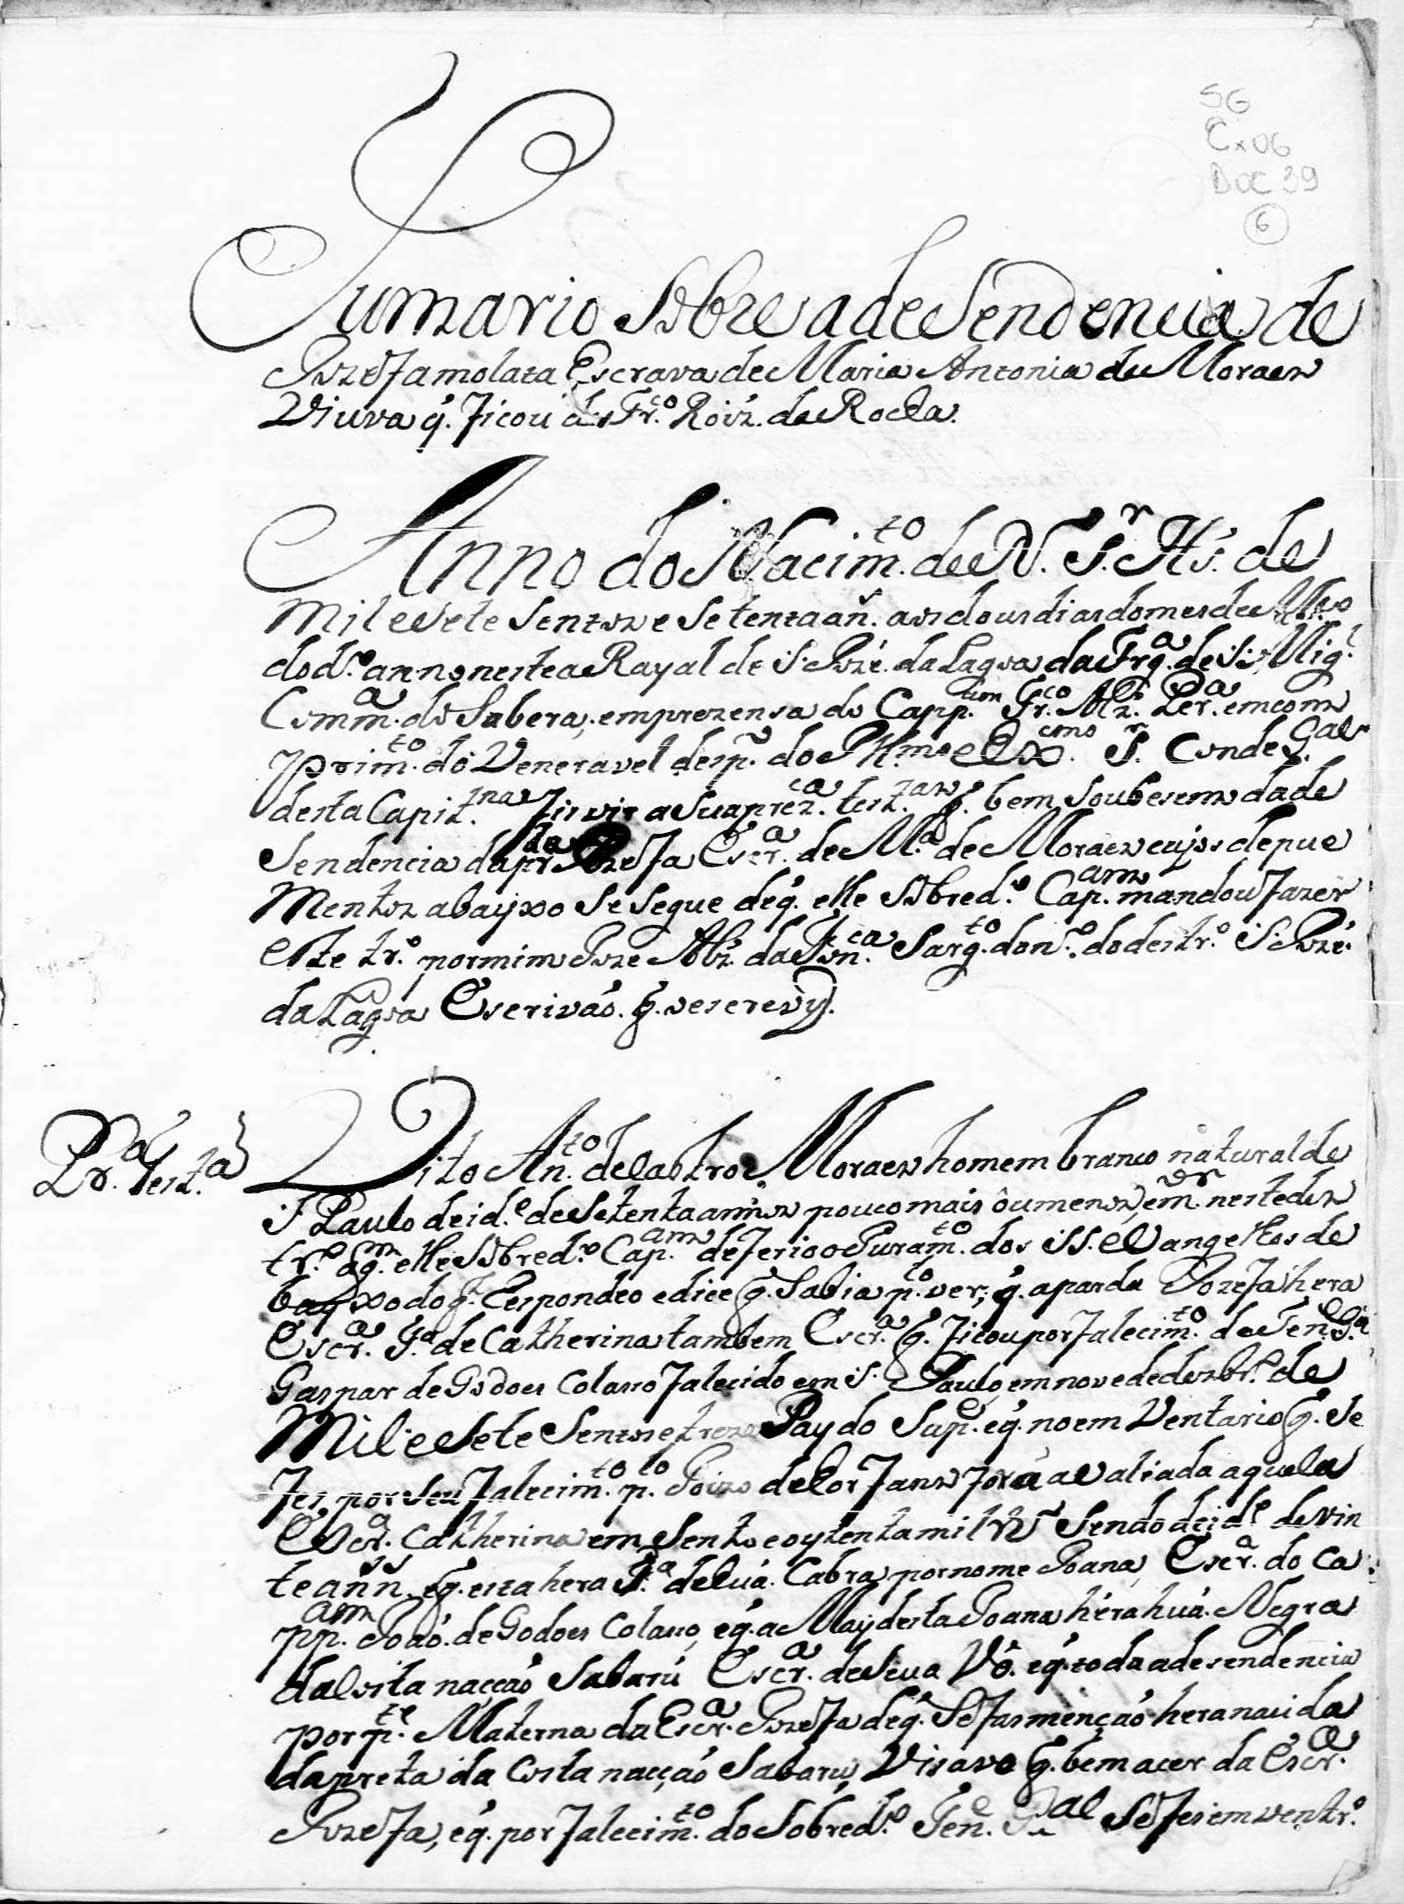 SG
Cx 06
Doc 39
6
Sumario Sobre a deSendencia de
Jozefa molata Escrava de Maria Antonia de Moraez
Viuva q̃. ficou de Fr.co Roiz. da Rocha.
Anno do Nacim.to de N. S.r Jhs. de
Mil e Sete Sentoz e Setenta an.s aos dous dias do mes de
do d.o anno neste aRayal de S. Joze. da Lagoa da Frg.a de S. Mig.l
Com.a do Sabera, em prezensa do Capp.am Fr.co Alz. Per.a em com
prim.to do Veneravel desp.o do Jll.mo e Ex.cmo S.r Conde G.al
desta Capit.nia fis vir a Sua prez.ca test.as q̃. bem Soubesem da de
Sendencia da pr.da Jozefa Escr.a de M.a de Moraez cujos depue
Mentoz abayxo Se Segue de q̃. elle Sobred.o Cap.am mandou fazer
este tr.o por mim Joze Alz. da Fon.ca Sarg.to do n.o do destr.o S. Joze.
da Lagoa Escrivão. q̃. o escrevy.
Pr.a Test.a
Dito An.to de Castro Moraez homem branco natural de
S. Paulo de id.e de Setenta annoz pouco mais ôu menoz, m.or neste dez
tr.o a q.m elle Sobred.o Cap.am deferio o Juram.to dos SS. Evangelhos de
bayxo do q̃. Respondeo e dice q̃. Sabia p.to ver, q̃. a parda Jozefa hera
Escr.a f.a de Catherina tambem Escr.a q̃. ficou por falecim.to do Ten.e G.al
Gaspar de Godoes Colaso falecido em S. Paulo em nove de dezbr.o de
Mil e Sete Sentos e treze Pay do Sup.e e q̃. no emVentario q̃. Se
fes por seu falecim.to p.lo Joizo de Orfanz fora avaliada aquela
Escr.a Catherina em Sento e oytenta mil r̃s Sendo de id.e de vin
te ann.s e q̃. esta hera f.a de huã. Cabra por nome Joana, Escr.a do Ca
pp.am João. de Godoes Colaso, e q̃. a May desta Joana hera huã. Negra
da Costa nação Sabarú Escr.a de Seu a Vó. e q̃. toda a desendencia
por p.te Materna da Escr.a Jozefa de q̃. Se fas menção hera nacida
da preta da Costa nação Sabarú, Visavo q̃. bem a cer da Escr.a
Jozefa, e q̃. por falecim.to do Sobred.o Ten.e G.al Se fes emventr.o